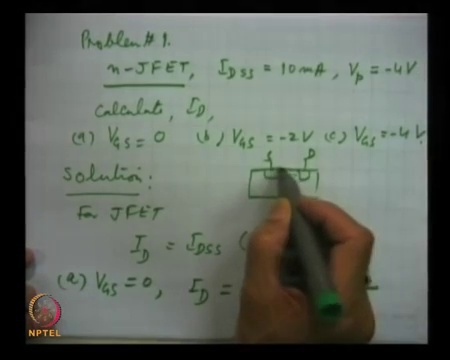 Problem # 1.
n-JFET, I_DSS = 10 mA, V_p = -4V
Calculate, I_D,
(a) V_GS = 0 (b) V_GS = -2V (c) V_GS = -4V.
Solution:
S D
For JFET
I_D = I_DSS (
(a) V_GS = 0, I_D =
NPTEL